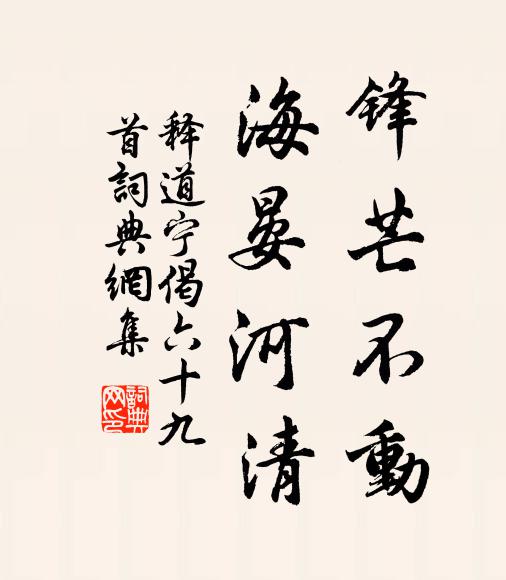 锋芒不動
海晏河清
释道宁偈六十九
首詞典網集
詞典网印